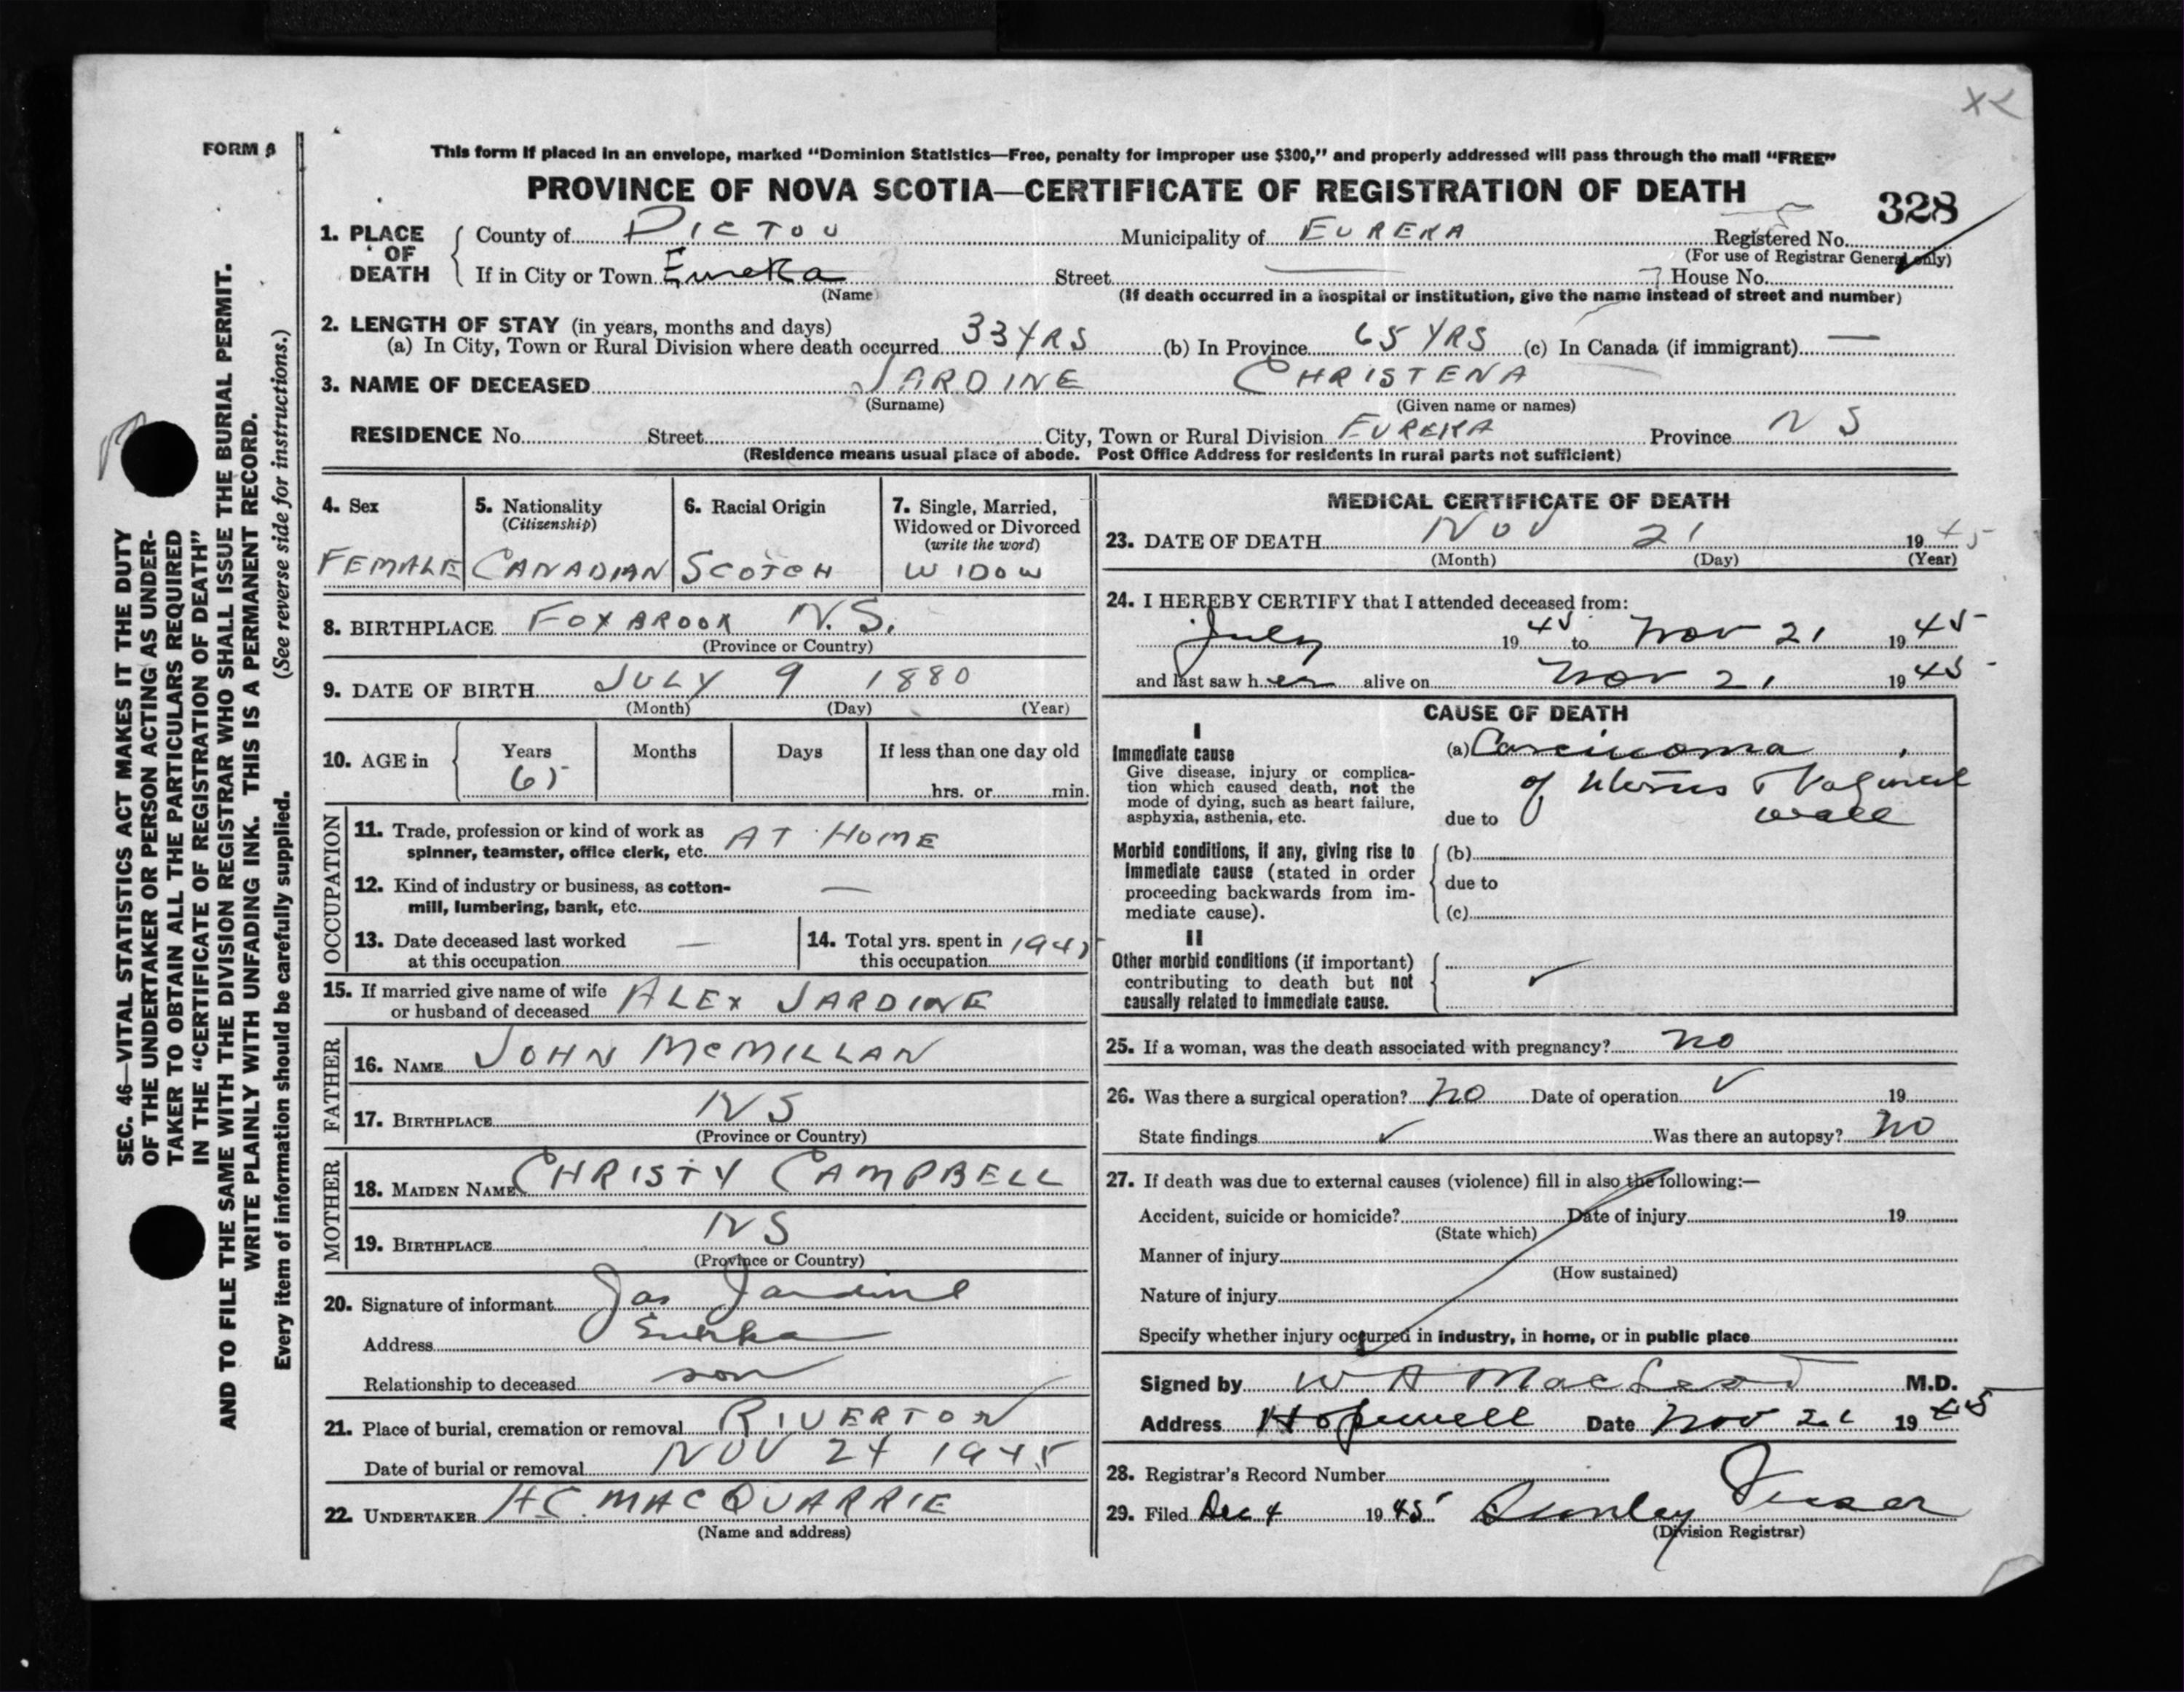 XL
FORM 6
This form if placed in an envelope, marked “Dominion Statistics—Free, penalty for improper use $300,” and properly addressed will pass through the mail “FREE”
PROVINCE OF NOVA SCOTIA—CERTIFICATE OF REGISTRATION OF DEATH
328
1. PLACE OF DEATH
County of PICTOU Municipality of EUREKA Registered No.
(For use of Registrar General only)
If in City or Town Eureka Street — House No.
(Name) (If death occurred in a hospital or institution, give the name instead of street and number)
2. LENGTH OF STAY (in years, months and days)
(a) In City, Town or Rural Division where death occurred 33 YRS (b) In Province 65 YRS (c) In Canada (if immigrant) —
3. NAME OF DECEASED JARDINE CHRISTENA
(Surname) (Given name or names)
RESIDENCE No. Street City, Town or Rural Division EUREKA Province N S
(Residence means usual place of abode. Post Office Address for residents in rural parts not sufficient)
4. Sex
FEMALE
5. Nationality
(Citizenship)
CANADIAN
6. Racial Origin
SCOTCH
7. Single, Married,
Widowed or Divorced
(write the word)
WIDOW
8. BIRTHPLACE FOXBROOK N.S.
(Province or Country)
9. DATE OF BIRTH JULY 9 1880
(Month) (Day) (Year)
10. AGE in
Years Months Days If less than one day old
65 hrs. or min.
OCCUPATION
11. Trade, profession or kind of work as
spinner, teamster, office clerk, etc. AT HOME
12. Kind of industry or business, as cotton-
mill, lumbering, bank, etc. —
13. Date deceased last worked
at this occupation —
14. Total yrs. spent in
this occupation 1945
15. If married give name of wife
or husband of deceased ALEX JARDINE
FATHER
16. NAME JOHN MCMILLAN
17. BIRTHPLACE NS
(Province or Country)
MOTHER
18. MAIDEN NAME CHRISTY CAMPBELL
19. BIRTHPLACE NS
(Province or Country)
20. Signature of informant Jas Jardine
Address Eureka
Relationship to deceased son
21. Place of burial, cremation or removal RIVERTON
Date of burial or removal NOV 24 1945
22. UNDERTAKER H.C. MACQUARRIE
(Name and address)
MEDICAL CERTIFICATE OF DEATH
23. DATE OF DEATH NOV 21 1945
(Month) (Day) (Year)
24. I HEREBY CERTIFY that I attended deceased from:
July 1945 to Nov 21 1945
and last saw her alive on Nov 21 1945
CAUSE OF DEATH
I
Immediate cause
Give disease, injury or complica-
tion which caused death, not the
mode of dying, such as heart failure,
asphyxia, asthenia, etc.
(a) Carcinoma
of Uterus & Vaginal
due to wall
Morbid conditions, if any, giving rise to
immediate cause (stated in order
proceeding backwards from im-
mediate cause).
(b)
due to
(c)
II
Other morbid conditions (if important)
contributing to death but not
causally related to immediate cause.
✓
25. If a woman, was the death associated with pregnancy? no
26. Was there a surgical operation? no Date of operation ✓ 19
State findings ✓ Was there an autopsy? no
27. If death was due to external causes (violence) fill in also the following:—
Accident, suicide or homicide? Date of injury 19
(State which)
Manner of injury
(How sustained)
Nature of injury
Specify whether injury occurred in industry, in home, or in public place
Signed by W A MacLeod M.D.
Address Hopewell Date Nov 21 1945
28. Registrar's Record Number
29. Filed Dec 4 1945
(Division Registrar)
SEC. 46—VITAL STATISTICS ACT MAKES IT THE DUTY
OF THE UNDERTAKER OR PERSON ACTING AS UNDER-
TAKER TO OBTAIN ALL THE PARTICULARS REQUIRED
IN THE “CERTIFICATE OF REGISTRATION OF DEATH”
AND TO FILE THE SAME WITH THE DIVISION REGISTRAR WHO SHALL ISSUE THE BURIAL PERMIT.
WRITE PLAINLY WITH UNFADING INK. THIS IS A PERMANENT RECORD.
Every item of information should be carefully supplied. (See reverse side for instructions.)